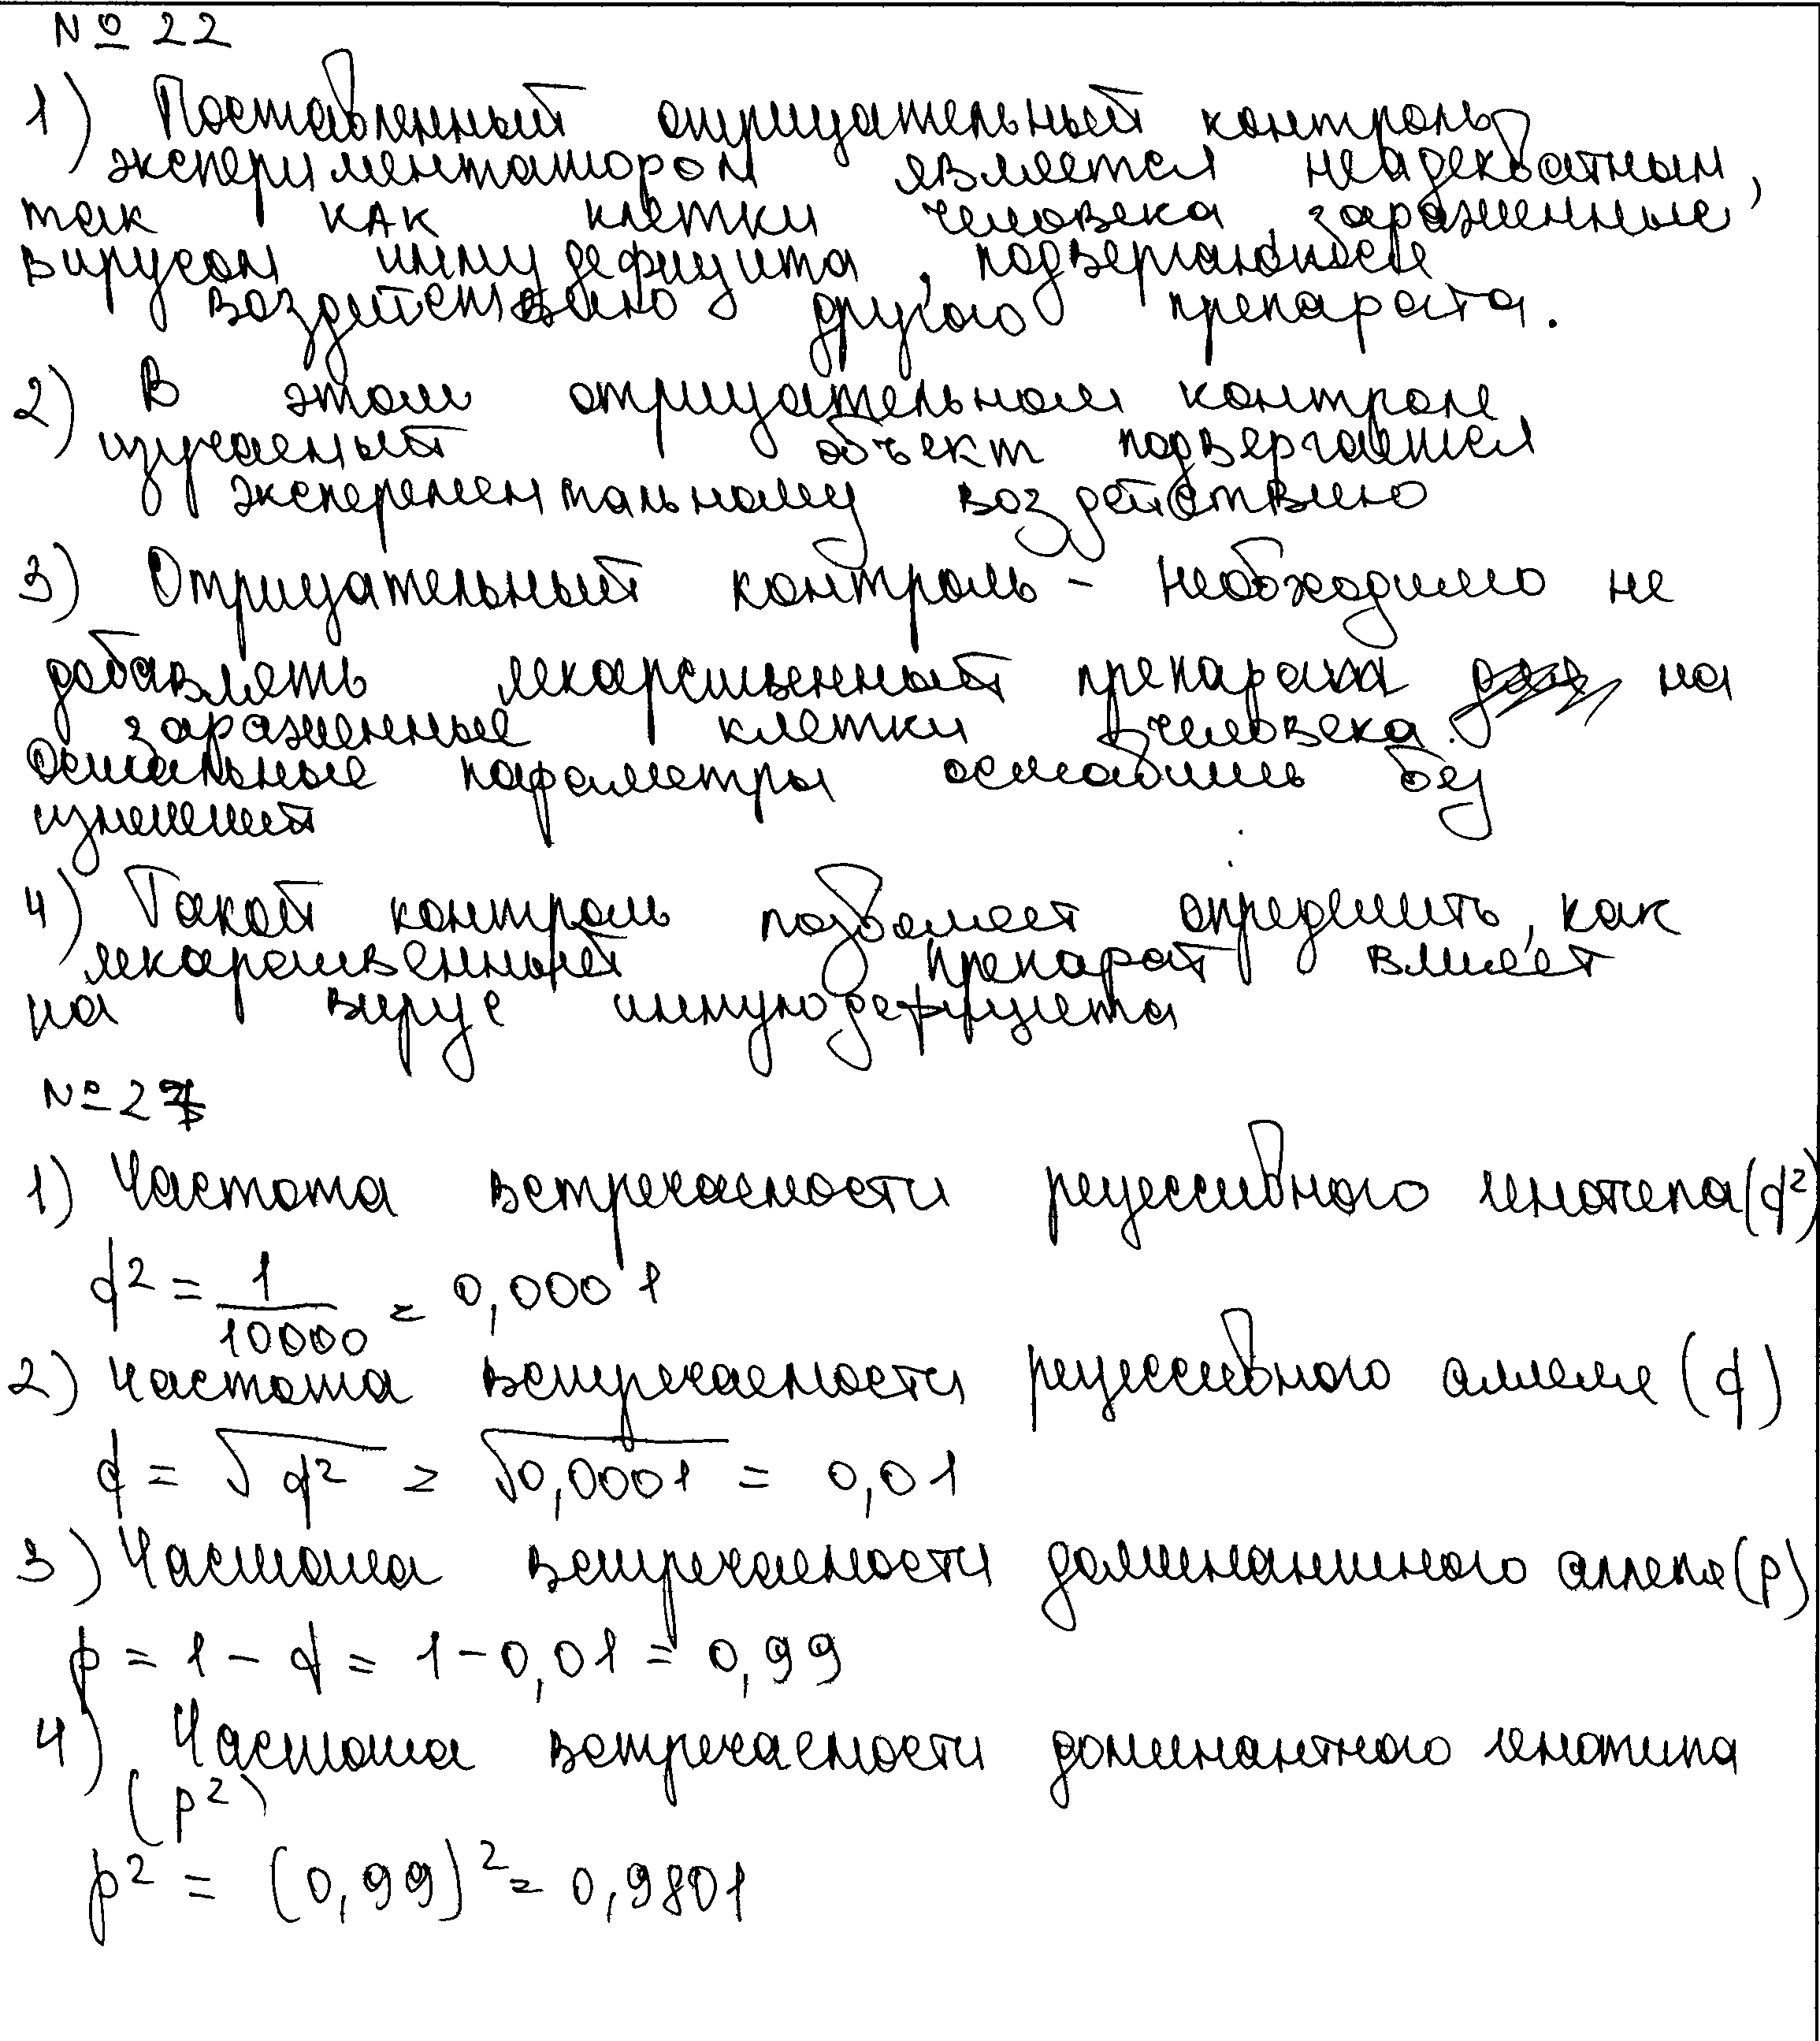 № 22
1) Поставленный отрицательный контроль
экспериментатором является неадекватным,
так как клетки человека, зараженные
вирусом иммудефицита, подвергаются
воздействию другого препарата.
2) В этом отрицательном контроле,
изучаемый объект подвергается
эксперементальному воздействию
3) Отрицательный контроль - необходимо не
добавлять лекарственный препарат на
зараженные клетки человека.
Остальные параметры оставить без
изменений
4) Такой контроль позволяет определить, как
лекарственный препарат влияет
на вирус иммунодефицита
№ 27
1) Частота встречаемости рецессивного генотипа (q²)
q² = 1/10000 = 0,0001
2) Частота встречаемости рецессивного аллеля (q)
q = √q² = √0,0001 = 0,01
3) Частота встречаемости доминантного аллеля (p)
p = 1 - q = 1 - 0,01 = 0,99
4) Частота встречаемости доминантного генотипа
(p²)
p² = (0,99)² = 0,9801